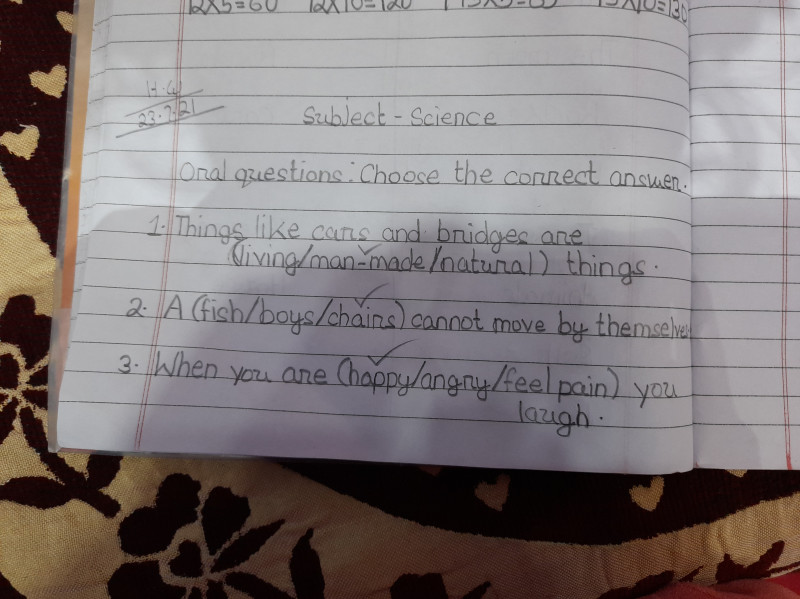 12x5=60 12x10=120 13x10=130
H.W
23.7.21
Subject - Science
Oral questions: Choose the correct answer.
1. Things like cars and bridges are
(living/man-made/natural) things.
2. A (fish/boys/chairs) cannot move by themselves
3. When you are (happy/angry/feel pain) you
laugh.